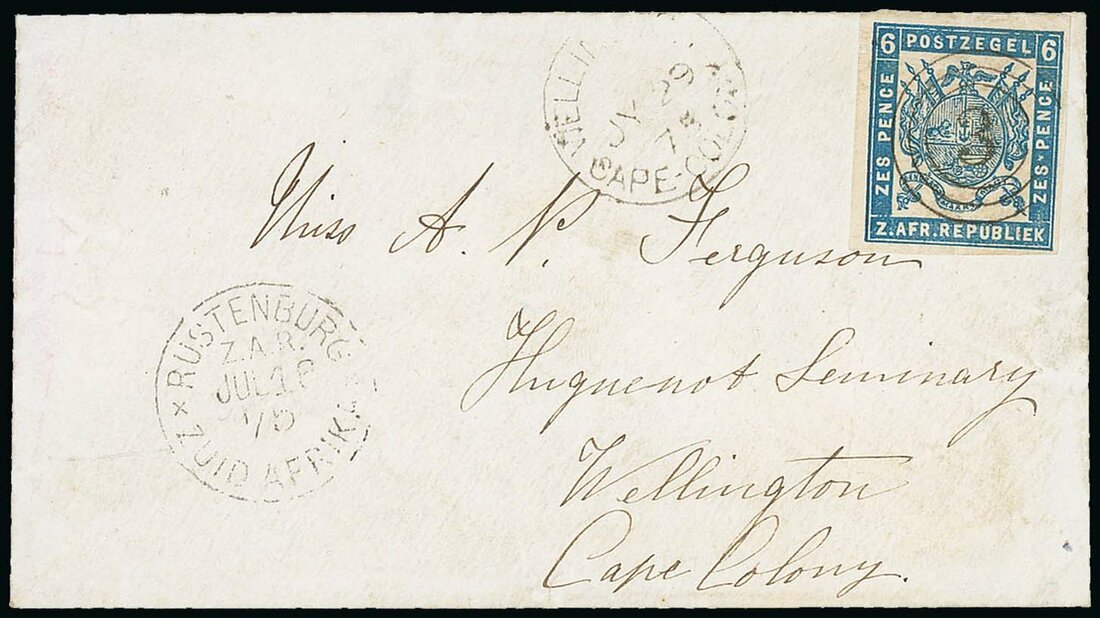 6 POSTZEGEL 6
ZES PENCE
ZES PENCE
Z. AFR. REPUBLIEK
JY 29
CAPE COLONY
Miss A. P. Ferguson
Huguenot Seminary
Wellington
Cape Colony.
RUSTENBURG
Z.A.R.
JUL 18
75
ZUID AFRIKA